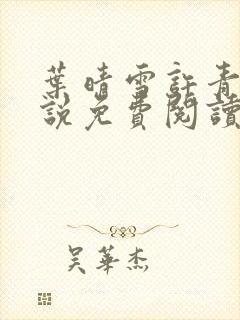 葉晴雪許青
說免費閱讀
吴華杰